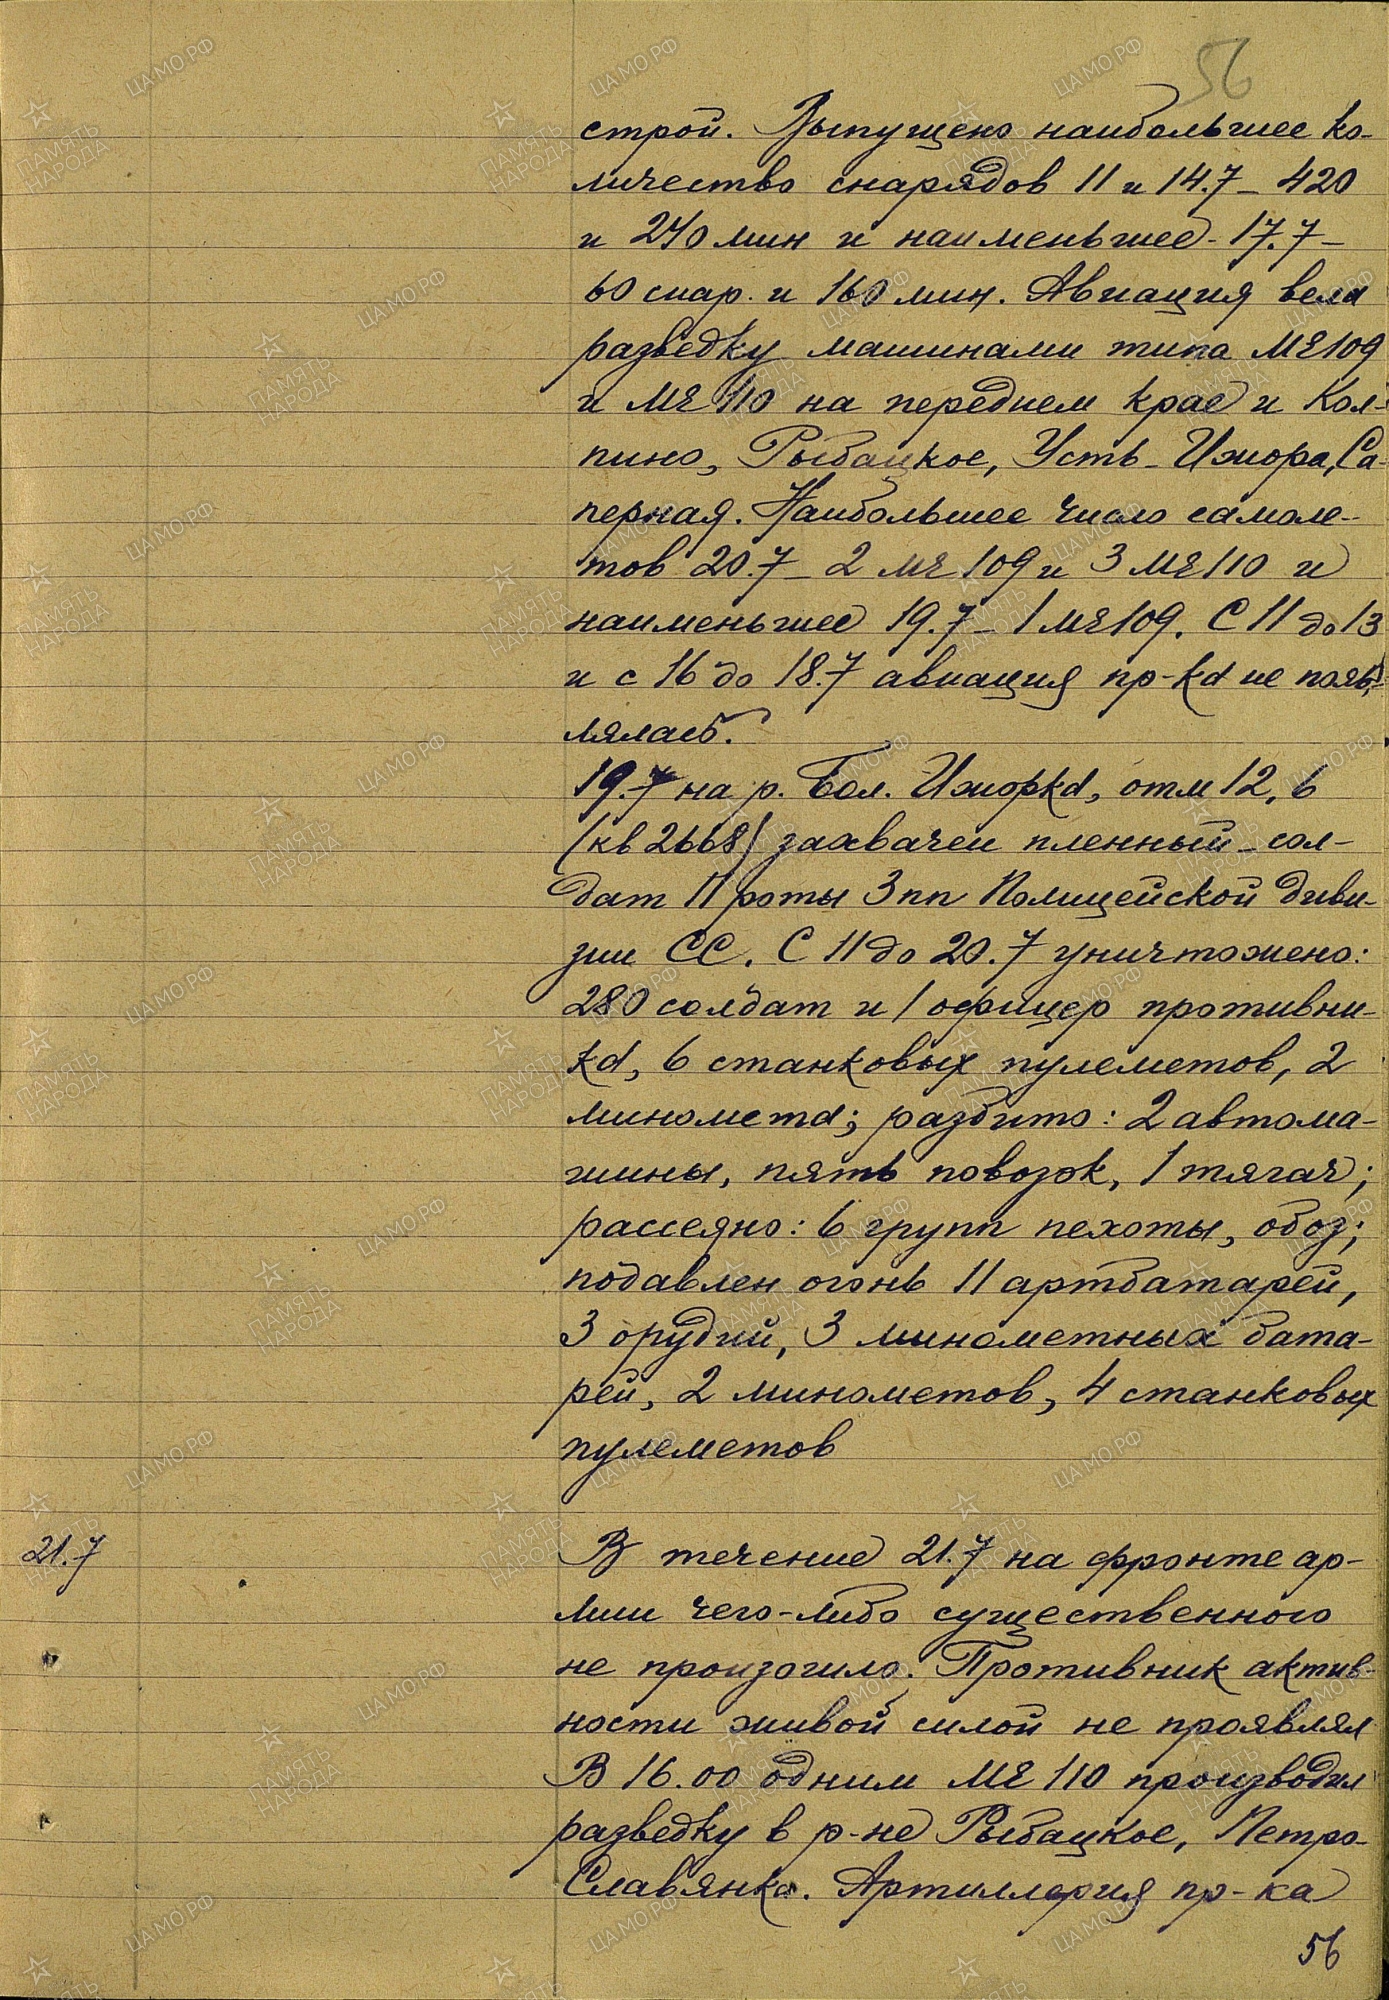 56
строй. Выпущено наибольшее ко-
личество снарядов 11 и 14.7 – 420
и 240 мин и наименьшее - 17.7 –
60 снар. и 160 мин. Авиация вела
разведку машинами типа МЕ109
и МЕ110 на переднем крае и Кол-
пино, Рыбацкое, Усть-Ижора, Са-
перная. Наибольшее число самоле-
тов 20.7 – 2 МЕ109 и 3 МЕ110 и
наименьшее 19.7 – 1 МЕ109. С 11 до 13
и с 16 до 18.7 авиация пр-ка не появ-
лялась.
19.7 на р. Бол. Ижорка, отм 12,6
(кв 2668) захвачен пленный – сол-
дат 11 роты 3 пп Полицейской диви-
зии СС. С 11 до 20.7 уничтожено:
280 солдат и 1 офицер противни-
ка, 6 станковых пулеметов, 2
миномета; разбито: 2 автома-
шины, пять повозок, 1 тягач;
рассеяно: 6 групп пехоты, обоз;
подавлен огонь 11 артбатарей,
3 орудий, 3 минометных бата-
рей, 2 минометов, 4 станковых
пулеметов
21.7
В течение 21.7 на фронте ар-
мии чего-либо существенного
не произошло. Противник актив-
ности живой силой не проявлял
В 16.00 одним МЕ 110 производил
разведку в р-не Рыбацкое, Петро-
Славянка. Артиллерия пр-ка
56